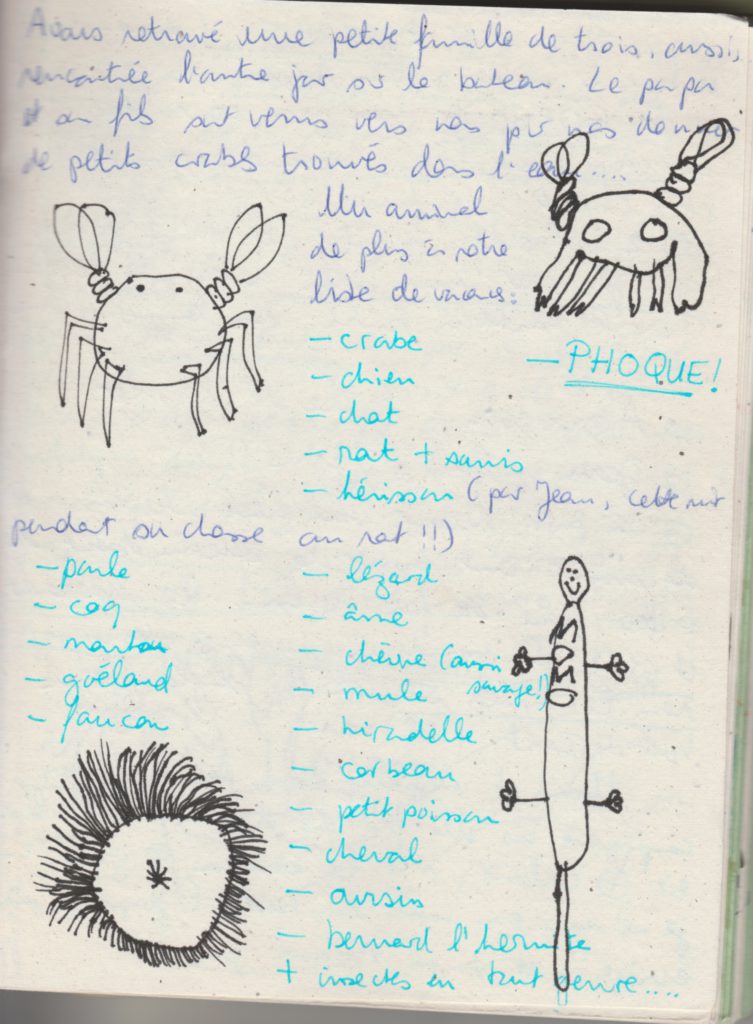 Avons retrouvé une petite famille de trois, aussi,
rencontrée l'autre jour sur le bateau. Le papa
et son fils sont venus vers nous pour nous donner
de petits crabes trouvés dans l'eau....
Un animal
de plus à notre
liste de vacances :
- crabe
- PHOQUE !
- chien
- chat
- rat + souris
- hérisson (par Jean, cette nuit
pendant sa chasse au rat !!)
- poule
- coq
- mouton
- goéland
- faucon
- lézard
- âne
- chèvre (aussi
sauvage !)
- mule
- hirondelle
- corbeau
- petit poisson
- cheval
- oursins
- bernard l'hermite
+ insectes en tout genre....